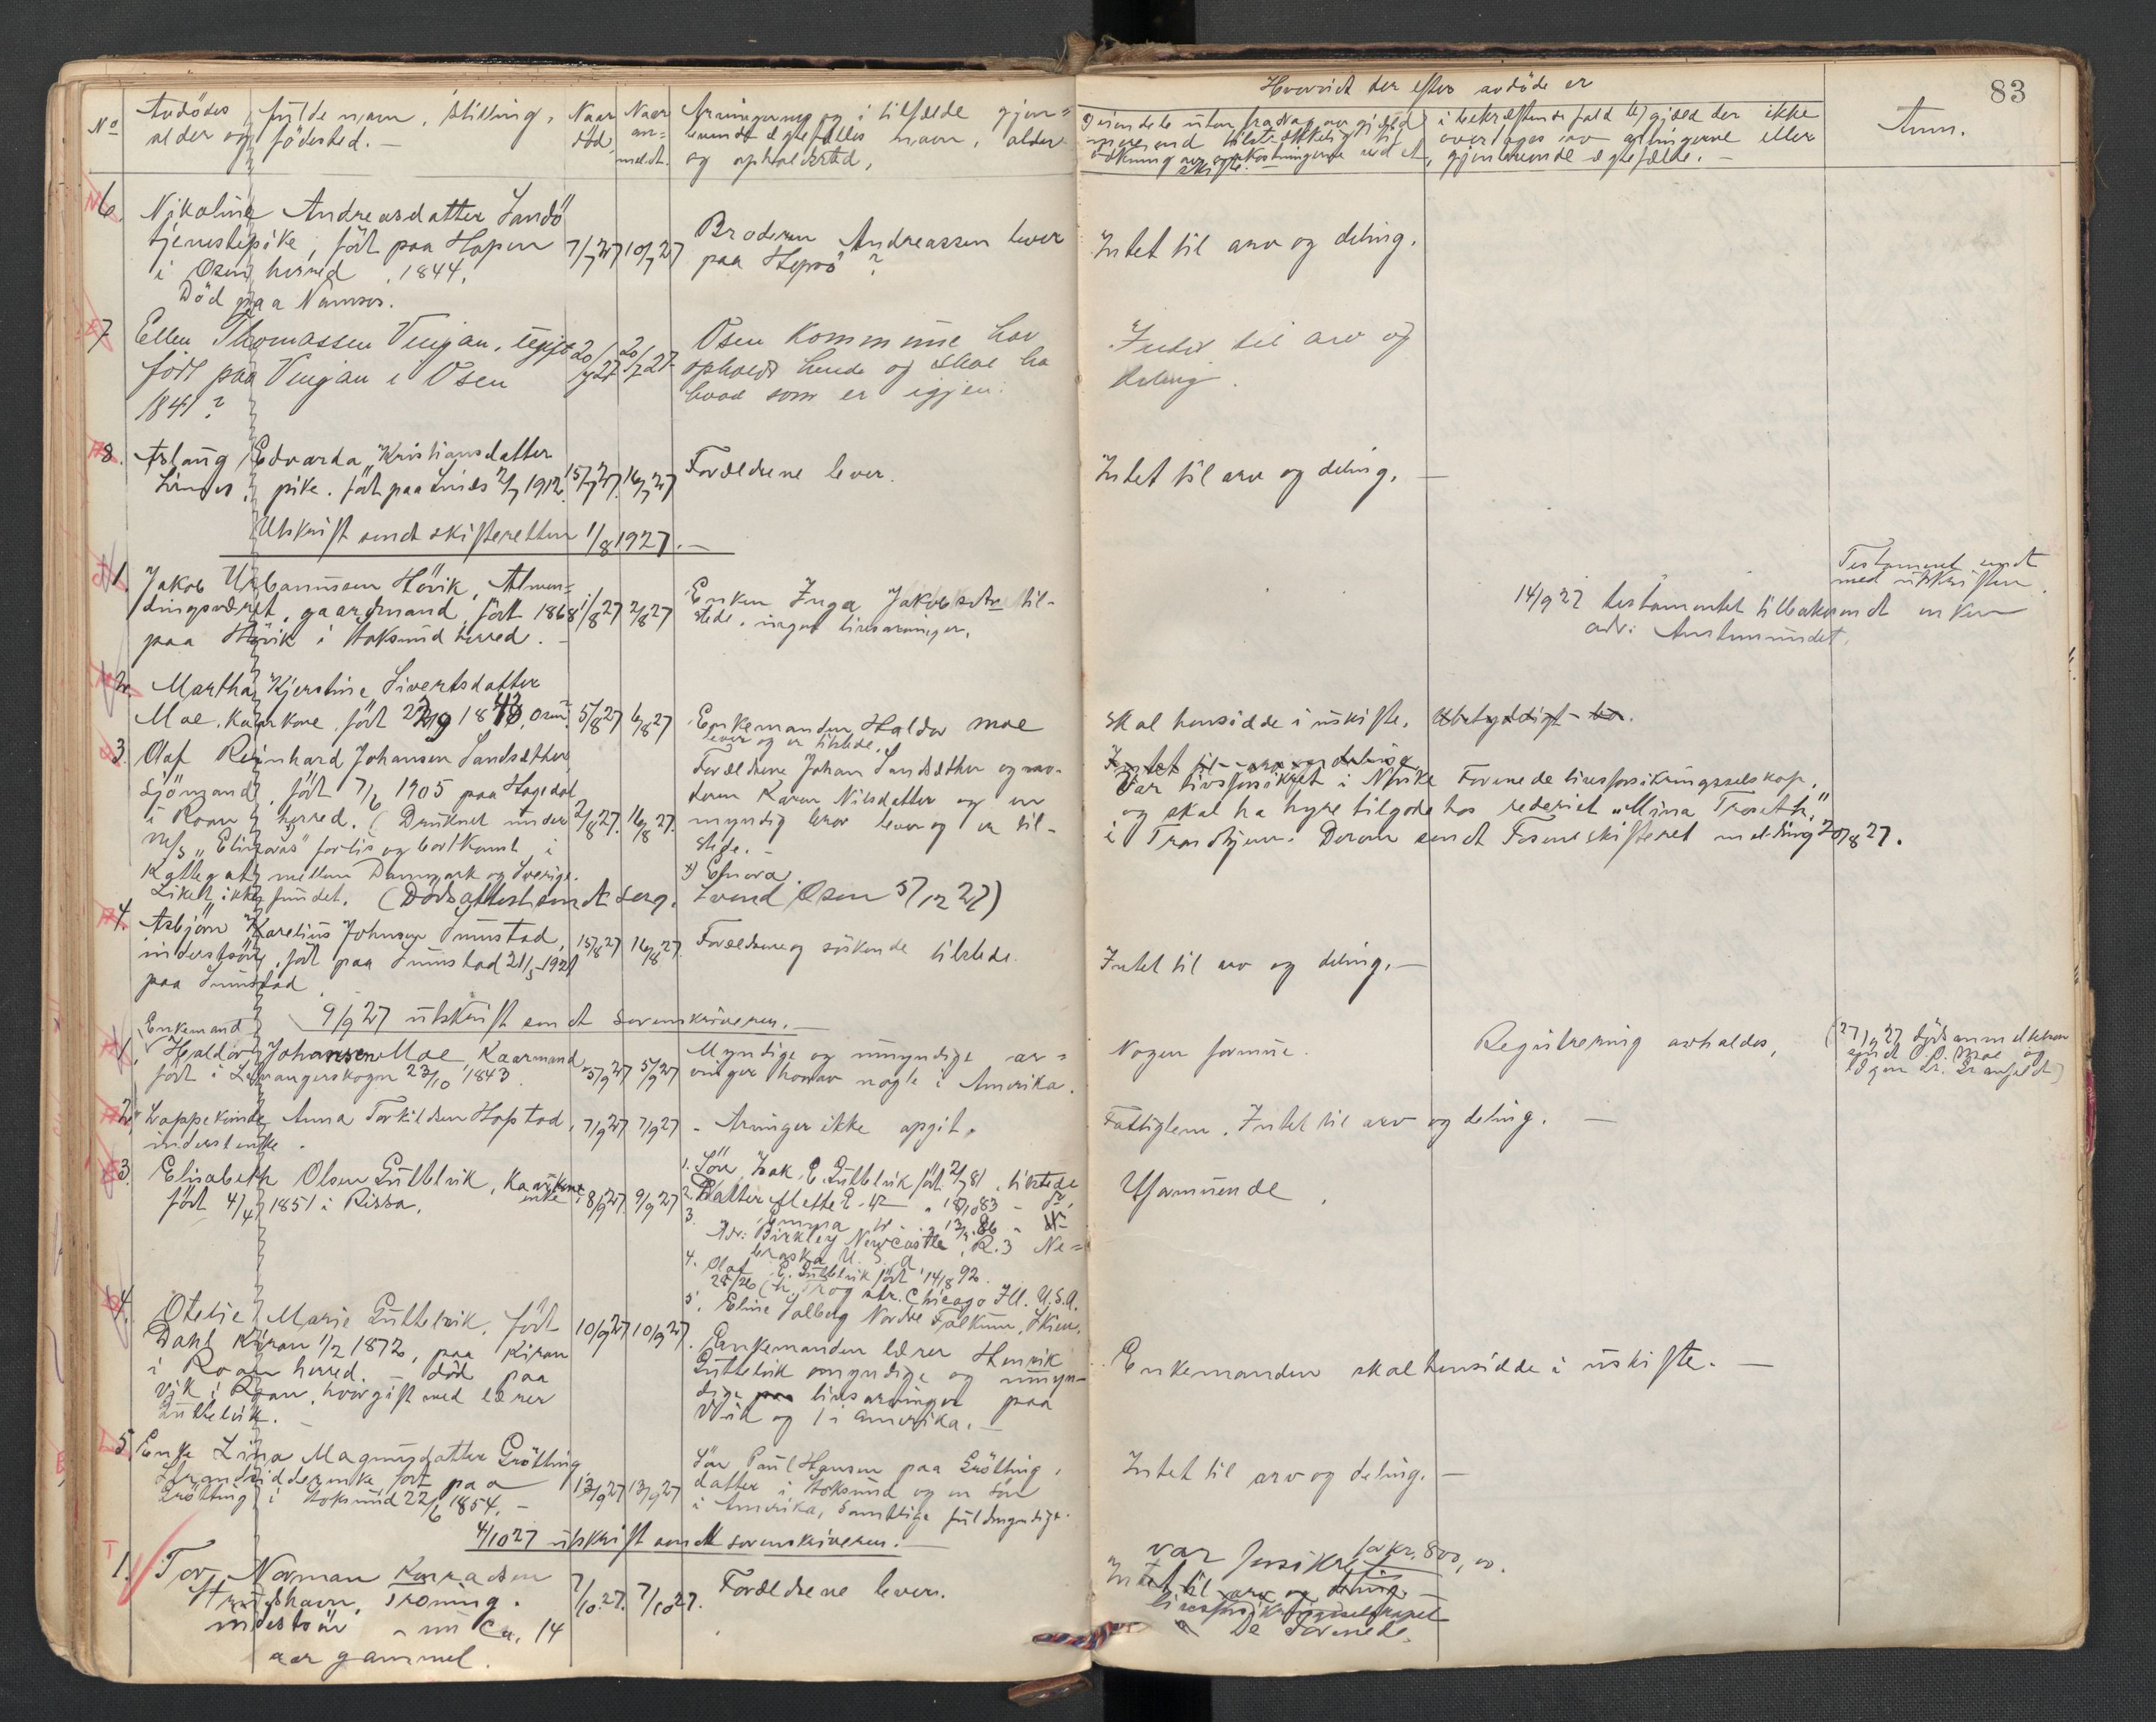 83
No
Avdödes fulde navn, stilling,
alder og födested. —
Naar
död
Naar
an=
meldt.
Arvingernes og i tilfælde gjen=
levende egtefælles navn, alder
og opholdssted,
Hvorvidt der efter avdöde er
a) eiendele uten fradrag av gjæld
mere end tilstrækkelig til
dækning av omkostningerne ved et
skifte. —
i bekræftende fald b) gjæld der ikke
overtages av arvingerne eller
gjenlevende egtefælde. —
Anm.
6
Nikoline Andreasdatter Sandö
tjenestepike, födt paa Hopen
i Osen herred, 1844.
Död paa Namsos.
7/7 27
10/7 27
Broderen Andreassen lever
paa Hepsö ?
Intet til arv og deling.
7
Ellen Thomassen Vingan, ugift
födt paa Vingan i Osen
1841 ?
20/7 27
20/7 27
Osen Kommune har
opholdt hende og skal ha
hvad som er igjen.
Intet til arv og
deling.
8.
Aslaug Edvarda Kristiansdatter
pike. födt paa 2/7 1912.
15/7 27.
16/7 27
Forældrene lever.
Intet til arv og deling. —
Utskrift sendt skifteretten 1/8 1927. —
1.
Jakob Urbanussen Hövik, Almen=
dingsværet, gaardmand, födt 1868
paa Hövik i Stoksund herred. —
1/8 27
2/8 27
Enken Inga Jakobsdtr til-
stede, ingen livsarvinger.
Testamentet sendt
med utskriften.
14/9 27 testamentet tilbakesendt enken
adr: Austensundet.
2.
Martha Kjerstine Sivertsdatter
Moe, Kaarkone, födt 1843, Osen.
5/8 27
6/8 27
Enkemanden Haldor Moe
lever og er tilstede.
Skal hensidde i uskifte. Ubetydeligt bo.
3.
Olaf Reinhard Johansen Sandsæther,
Sjömand, födt 7/6 1905 paa Hagedal
i Roan herred. (Druknet under
M/S "Elisaväs" forlis og bortkomst i
Kattegat mellem Danmark og Sverige.
Liket ikke fundet. (Dödsattest sendt Serg. Lvend Osen 5/12 27)
2/8 27.
16/8 27.
Forældrene Johan Sandsæther og mo-
deren Karen Nilsdatter og en
myndig bror lever og er til-
stede. —
x) Elnora
Intet til arv og deling
Var livsforsikret i Norske Forenede livsforsikringsselskap,
og skal ha hyre tilgode hos rederiet "Mina Troseth,"
i Trondhjem. Derom sendt Fosens skifteret melding 20/8 27.
4.
Asbjörn Karelius Johnsen Sumstad,
inderstsön, födt paa Sumstad 21/5 1921
paa Sumstad
15/8 27
16/8 27.
Forældrene og söskende tilstede.
Intet til arv og deling. —
9/9 27 utskrift sendt sorenskriveren. —
1.
Enkemand
Haldor Johansen Moe, Kaarmand
födt i Levangerskogn 23/10 1843
5/9 27
5/9 27
Myndige og umyndige ar=
vinger hvorav nogle i Amerika.
Nogen formue.
Registrering avholdes,
(27/9 27 dödsanmeldelsen
sendt O.P. Moe og
2.
Lappekvinde Anna Torkildsen Hopstad,
inderstenke.
7/9 27
7/9 27
- Arvinger ikke opgit.
Fattiglem. Intet til arv og deling. —
3.
Elisabeth Olsen Guttelvik, Kaarkone
enke
födt 4/4 1851 i Rissa.
8/9 27
9/9 27
1. Sön Isak E. Guttelvik födt 2/7 81, tilstede
2. Datter Mette E. — " 18/10 83 - do,
3. Emma — " 13/3 86 -
Adr: Birkley Newcastle, R.3 Ne=
braska U.S.A.
4. Olaf E. Guttelvik födt 14/8 92.
2826 N. Troy str. Chicago Ill. U.S.A.
5. Eline Salberg Nordre Falkum, Skien.
Uformuende.
4.
Otelie Marie Guttelvik, födt
Dahl Kiran 1/2 1872, paa Kiran
i Roan herred. — död paa
Vik i Roan, hvor gift med lærer
Guttelvik. —
10/9 27
10/9 27.
Enkemanden lærer Henrik
Guttelvik myndige og umyn-
dige paa livsarvinger paa
Vik og 1 i Amerika. —
Enkemanden skal hensidde i uskifte. —
5.
Enke Lina Magnusdatter Grötting
Strandsidderenke födt paa
Grötting i Stoksund 22/6 1854. —
13/9 27
13/9 27
Sön Paul Hansen paa Grötting,
datter i Stoksund og en sön
i Amerika, samtlige fuldmyndige.
Intet til arv og deling. —
4/10 27 utskrift sendt sorenskriveren. —
1.
Tor Norman Konradsen
Strandshavn, Troning.
inderstsön - nu ca. 14
aar gammel.
7/10 27.
7/10 27.
Forældrene lever.
var forsikret for kr. 800,00.
Intet til arv og deling. —
livsforsikringsselskapet
De Forenede.